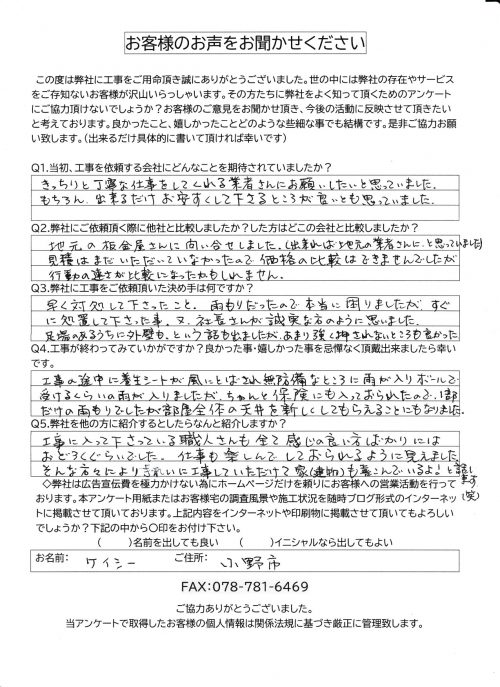 お客様のお声をお聞かせください
この度は弊社に工事をご用命頂き誠にありがとうございました。世の中には弊社の存在やサービス
をご存知ないお客様が沢山いらっしゃいます。その方たちに弊社をよく知って頂くためのアンケート
にご協力頂けないでしょうか?お客様のご意見をお聞かせ頂き、今後の活動に反映させて頂きたい
と考えております。良かったこと、嬉しかったことどのような些細な事でも結構です。是非ご協力お願
い致します。(出来るだけ具体的に書いて頂ければ幸いです)
Q1.当初、工事を依頼する会社にどんなことを期待されていましたか?
きっちりと丁寧な仕事をしてくれる業者さんにお願いしたいと思っていました。
もちろん、出来るだけお安すくして下さるところが良いとも思っていました。
Q2.弊社にご依頼頂く際に他社と比較しましたか?した方はどこの会社と比較しましたか?
地元の板金屋さんに問い合せしました。(出来れば地元の業者さんに、と思っていました)
見積はまだいただいていなかったので価格の比較はできませんでしたが
行動の速さが比較になったかもしれません。
Q3.弊社に工事をご依頼頂いた決め手は何ですか?
早く対処して下さったこと。雨もりだったので本当に困りましたが、すぐ
に処置して下さった事。又、社長さんが誠実な方のように思いました。
足場のあるうちに外壁も、という話も出ましたが、あまり強く押されないところも良かった
Q4.工事が終わってみていかがですか?良かった事・嬉しかった事を忌憚なく頂戴出来ましたら幸い
です。
工事の途中に養生シートが風にとばされ無防備なところに雨が入りボールで
受けるくらいの雨が入りましたが、ちゃんと保険にも入っておられたので、1部
だけの雨もりでしたが部屋全体の天井を新しくしてもらえることにもなりました。
Q5.弊社を他の方に紹介するとしたらなんと紹介しますか?
工事に入って下さっている職人さんも全て感じの良い方ばかりには
おどろくぐらいでした。仕事も楽しんでしておられるように見えました。
そんな方々によりきれいに工事していただけて家(建物)も喜こんでいるよ!と話します(笑)
◇弊社は広告宣伝費を極力かけない為にホームページだけを頼りにお客様への営業活動を行って
おります。本アンケート用紙またはお客様宅の調査風景や施工状況を随時ブログ形式のインターネッ
トに掲載させて頂いております。上記内容をインターネットや印刷物に掲載させて頂いてもよろしい
でしょうか?下記の中から〇印をお付け下さい。
( )名前を出しても良い ( )イニシャルなら出してもよい
お名前: ケイシー ご住所: 小野市
FAX:078-781-6469
ご協力ありがとうございました。
当アンケートで取得したお客様の個人情報は関係法規に基づき厳正に管理致します。